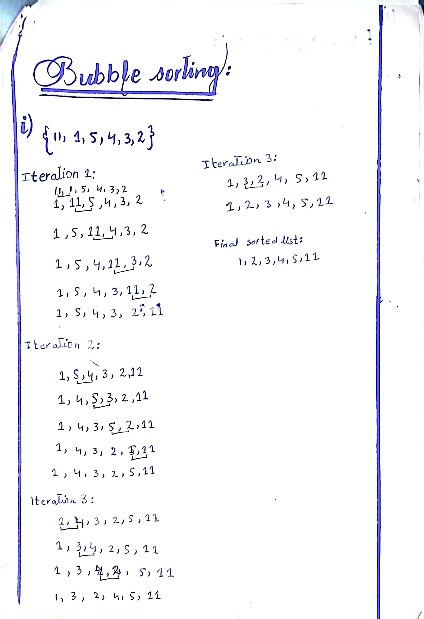 Bubble sorting:
i) {11, 1, 5, 4, 3, 2}
Iteration 1:
11, 1, 5, 4, 3, 2
1, 11, 5, 4, 3, 2
1, 5, 11, 4, 3, 2
1, 5, 4, 11, 3, 2
1, 5, 4, 3, 11, 2
1, 5, 4, 3, 2, 11
Iteration 2:
1, 5, 4, 3, 2, 11
1, 4, 5, 3, 2, 11
1, 4, 3, 5, 2, 11
1, 4, 3, 2, 5, 11
1, 4, 3, 2, 5, 11
Iteration 3:
1, 4, 3, 2, 5, 11
1, 3, 4, 2, 5, 11
1, 3, 4, 2, 5, 11
1, 3, 2, 4, 5, 11
Iteration 3:
1, 3, 2, 4, 5, 11
1, 2, 3, 4, 5, 11
Final sorted list:
1, 2, 3, 4, 5, 11